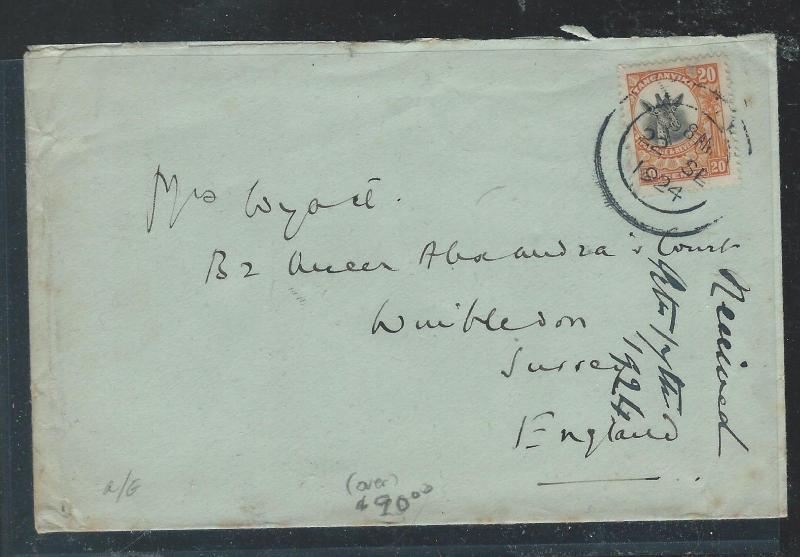 TANGANYIKA
20 20
8 AM
22 SE
1924
Mrs Wyatt.
B2 Queen Alexandra's Court
Wimbledon
Surrey
England
Received
1924
a/G
(over)
$90.00